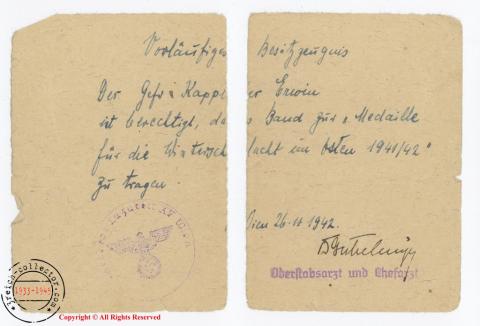 Vorläufiges Besitzzeugnis
Der Gefr. Kappe er Erwin
ist berechtigt, da s Band zur "Medaille
für die Wintersch lacht im Osten 1941/42"
zu tragen.
Wien 26. 11 1942.
Oberstabsarzt und Chefarzt
reich-collector.com
1933-1945
Copyright © All Rights Reserved